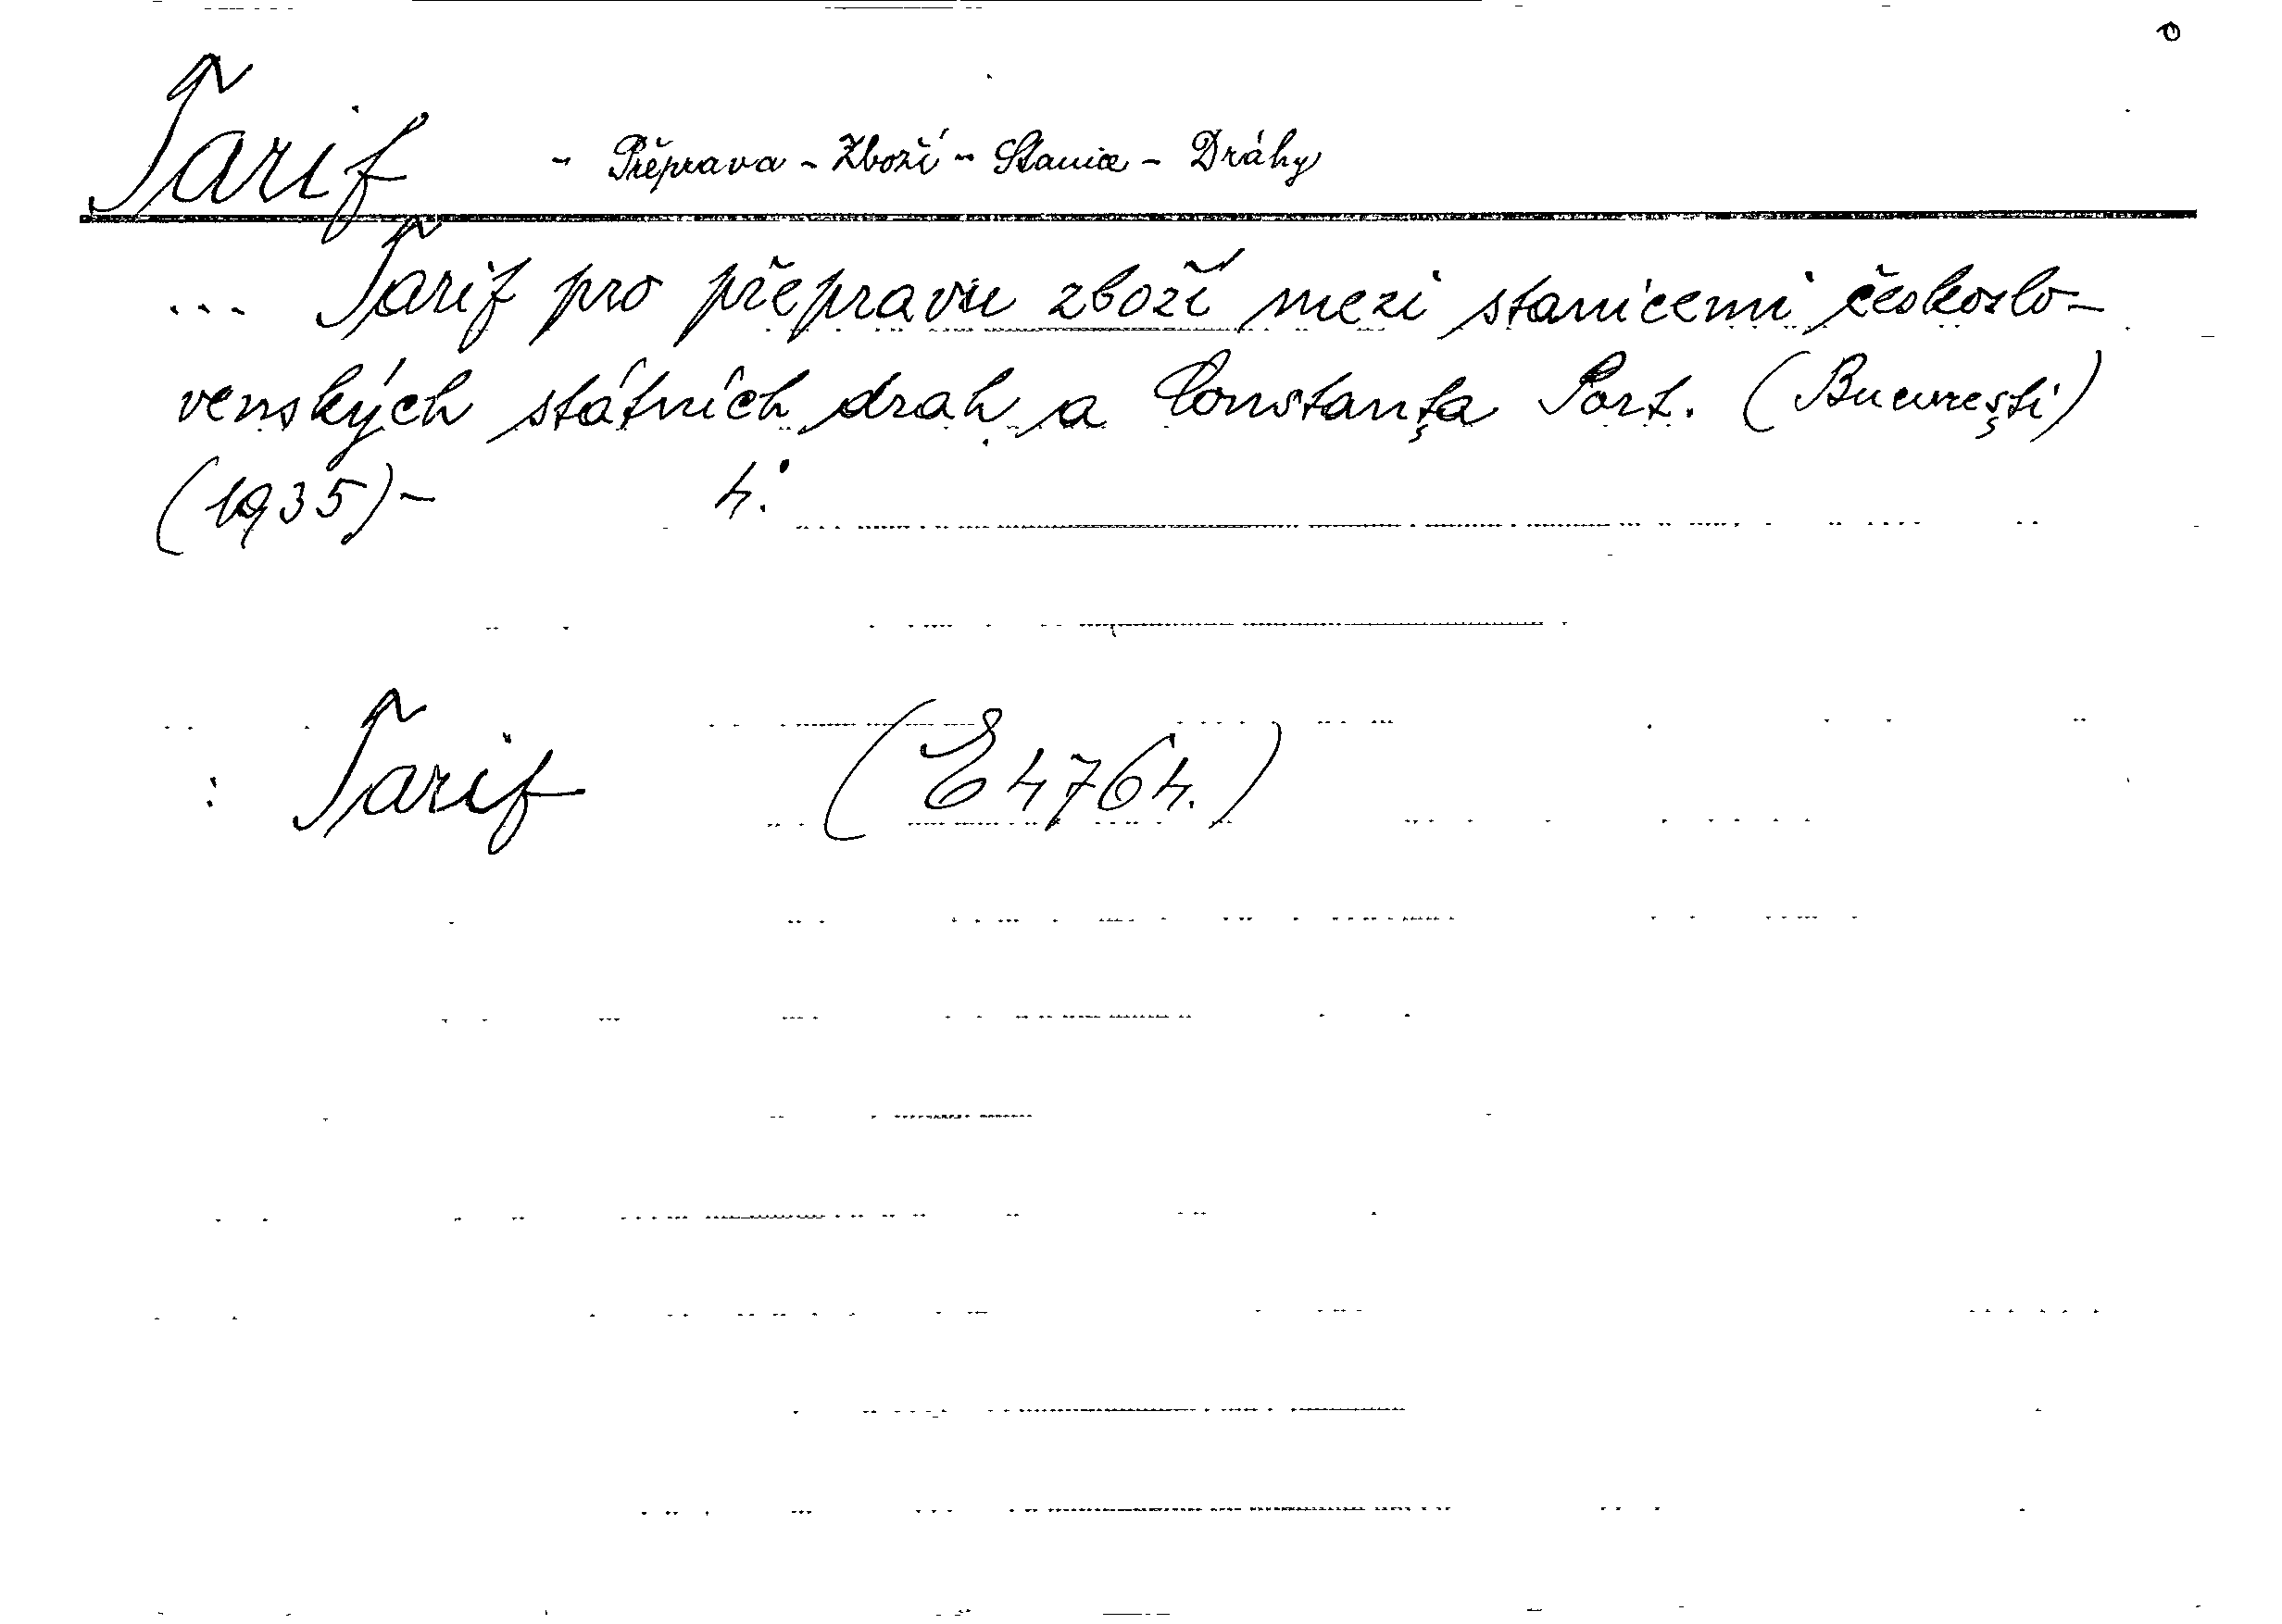 Tarif - Přeprava - Zboží - Stanice - Dráhy
... Tarif pro přepravu zboží mezi stanicemi českoslo-
venských státních drah a Constanţa Port. (Bucureşti)
(1935)- 4°.
: Tarif (E 4764.)